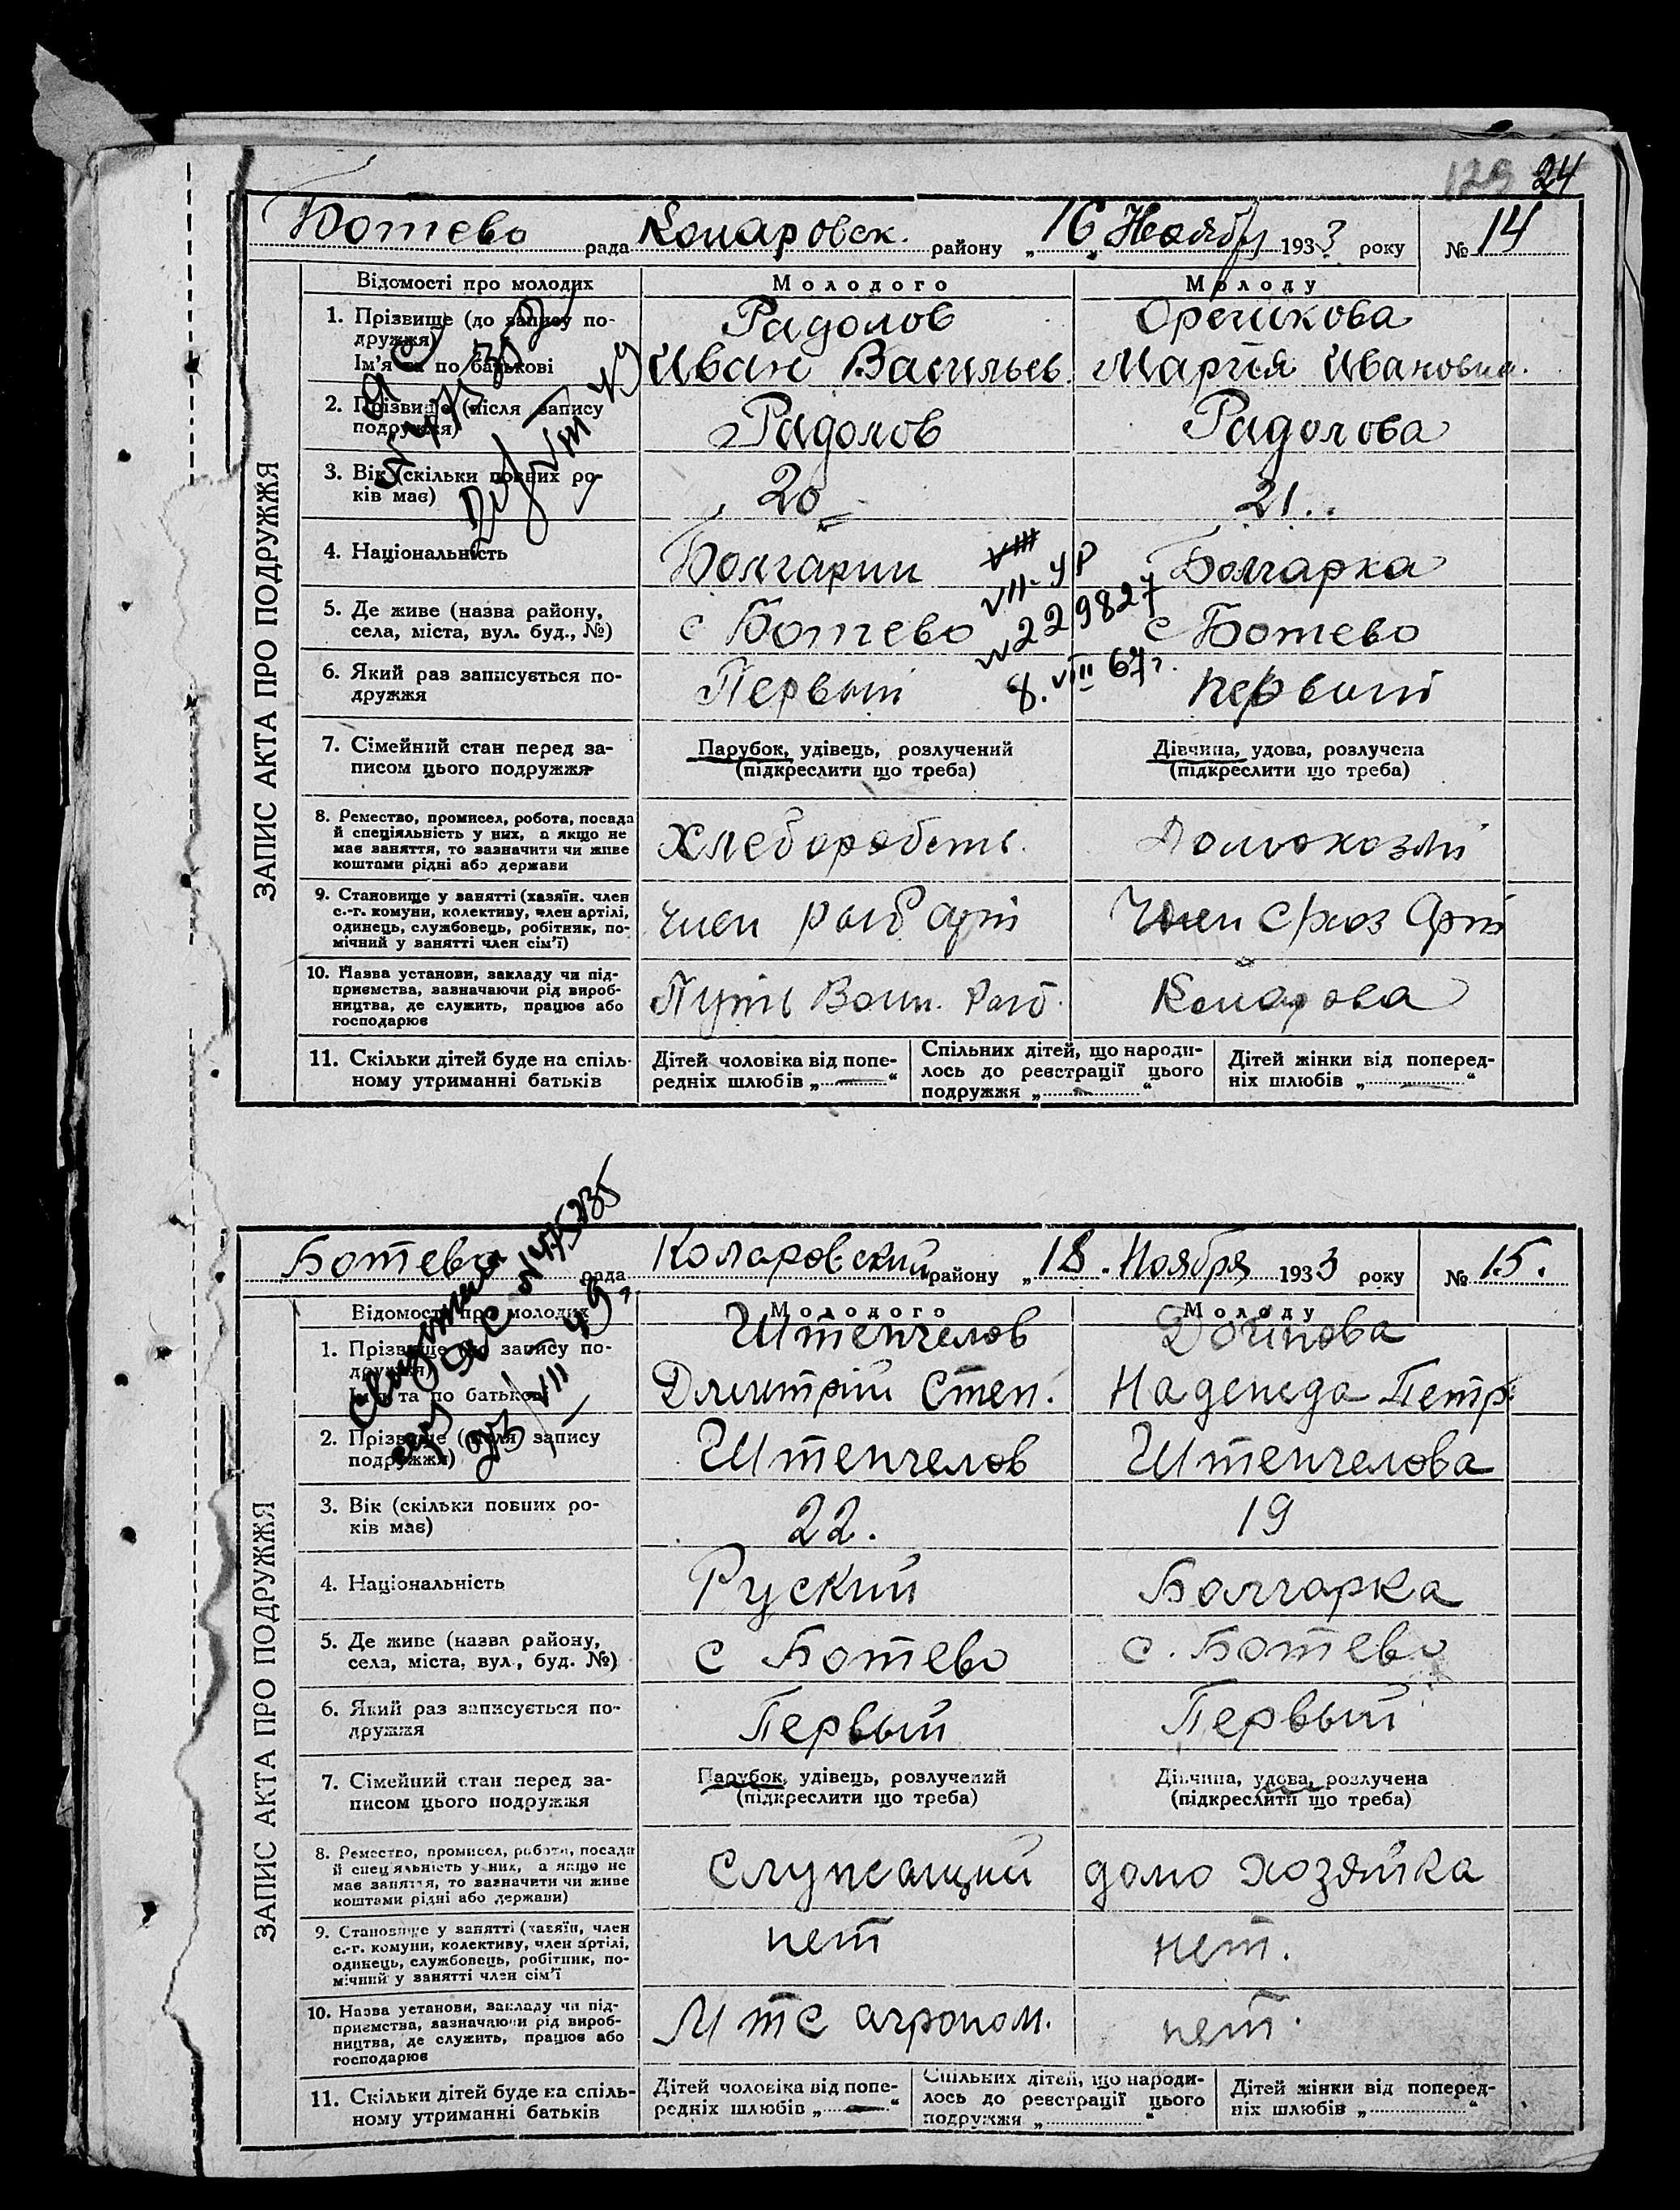 129 24
Ботево рада Коларовск. району „16 Ноябр 1933 року № 14
ЗАПИС АКТА ПРО ПОДРУЖЖЯ
Відомості про молодих Молодого Молоду
1. Прізвище (до запису по-
дружжя) Радолов Орешкова
Ім'я та по батькові Иван Васильев. Мария Ивановна.
2. Прізвище (після запису
подружжя) Радолов Радолова
3. Вік (скільки повних ро-
ків має) 20 21..
4. Національність Болгарин Болгарка
VIII
VII-УР
№229827
8.VIII 67г.
5. Де живе (назва району,
села, міста, вул. буд., №) с Ботево с Ботево
6. Який раз записується по-
дружжя Первый первый
7. Сімейний стан перед за-
писом цього подружжя
Парубок, удівець, розлучений
(підкреслити що треба)
Дівчина, удова, розлучена
(підкреслити що треба)
8. Ремество, промисел, робота, посада
й спеціяльність у них, а якщо не
має заняття, то зазначити чи живе
коштами рідні або держави
9. Становище у занятті (хазяїн. член
с.-г. комуни, колективу, член артілі,
одинець, службовець, робітник, по-
мічний у занятті член сім'ї)
член арт Член Арт
10. Назва установи, закладу чи під-
приємства, зазначаючи рід вироб-
ництва, де служить, працює або
господарює
Путь Коларова
11. Скільки дітей буде на спіль-
ному утриманні батьків
Дітей чоловіка від попе-
редніх шлюбів „—“
Спільних дітей, що народи-
лось до реєстрації цього
подружжя „—“
Дітей жінки від поперед-
ніх шлюбів „—“
Ботево рада Коларовский району „18. Ноября 1933 року № 15.
ЗАПИС АКТА ПРО ПОДРУЖЖЯ
Відомості про молодих Молодого Молоду
1. Прізвище (до запису по-
дружжя) Штепчелов
Ім'я та по батькові Дмитрий Степ. Надежда Петр.
2. Прізвище (після запису
подружжя) Штепчелов Штепчелова
3. Вік (скільки повних ро-
ків має) 22. 19
4. Національність Руский Болгарка
5. Де живе (назва району,
села, міста, вул., буд. №) с Ботево с. Ботево
6. Який раз записується по-
дружжя Первый Первый
7. Сімейний стан перед за-
писом цього подружжя
Парубок, удівець, розлучений
(підкреслити що треба)
Дівчина, удова, розлучена
(підкреслити що треба)
8. Ремество, промисел, робота, посада
й спеціяльність у них, а якщо не
має заняття, то зазначити чи живе
коштами рідні або держави)
Служащий домо хозяйка
9. Становище у занятті (хазяїн, член
с.-г. комуни, колективу, член артілі,
одинець, службовець, робітник, по-
мічний у занятті член сім'ї
нет нет.
10. Назва установи, закладу чи під-
приємства, зазначаючи рід вироб-
ництва, де служить, працює або
господарює
МТС агроном. нет.
11. Скільки дітей буде на спіль-
ному утриманні батьків
Дітей чоловіка від попе-
редніх шлюбів „—“
Спільних дітей, що народи-
лось до реєстрації цього
подружжя „ “
Дітей жінки від поперед-
ніх шлюбів „ “